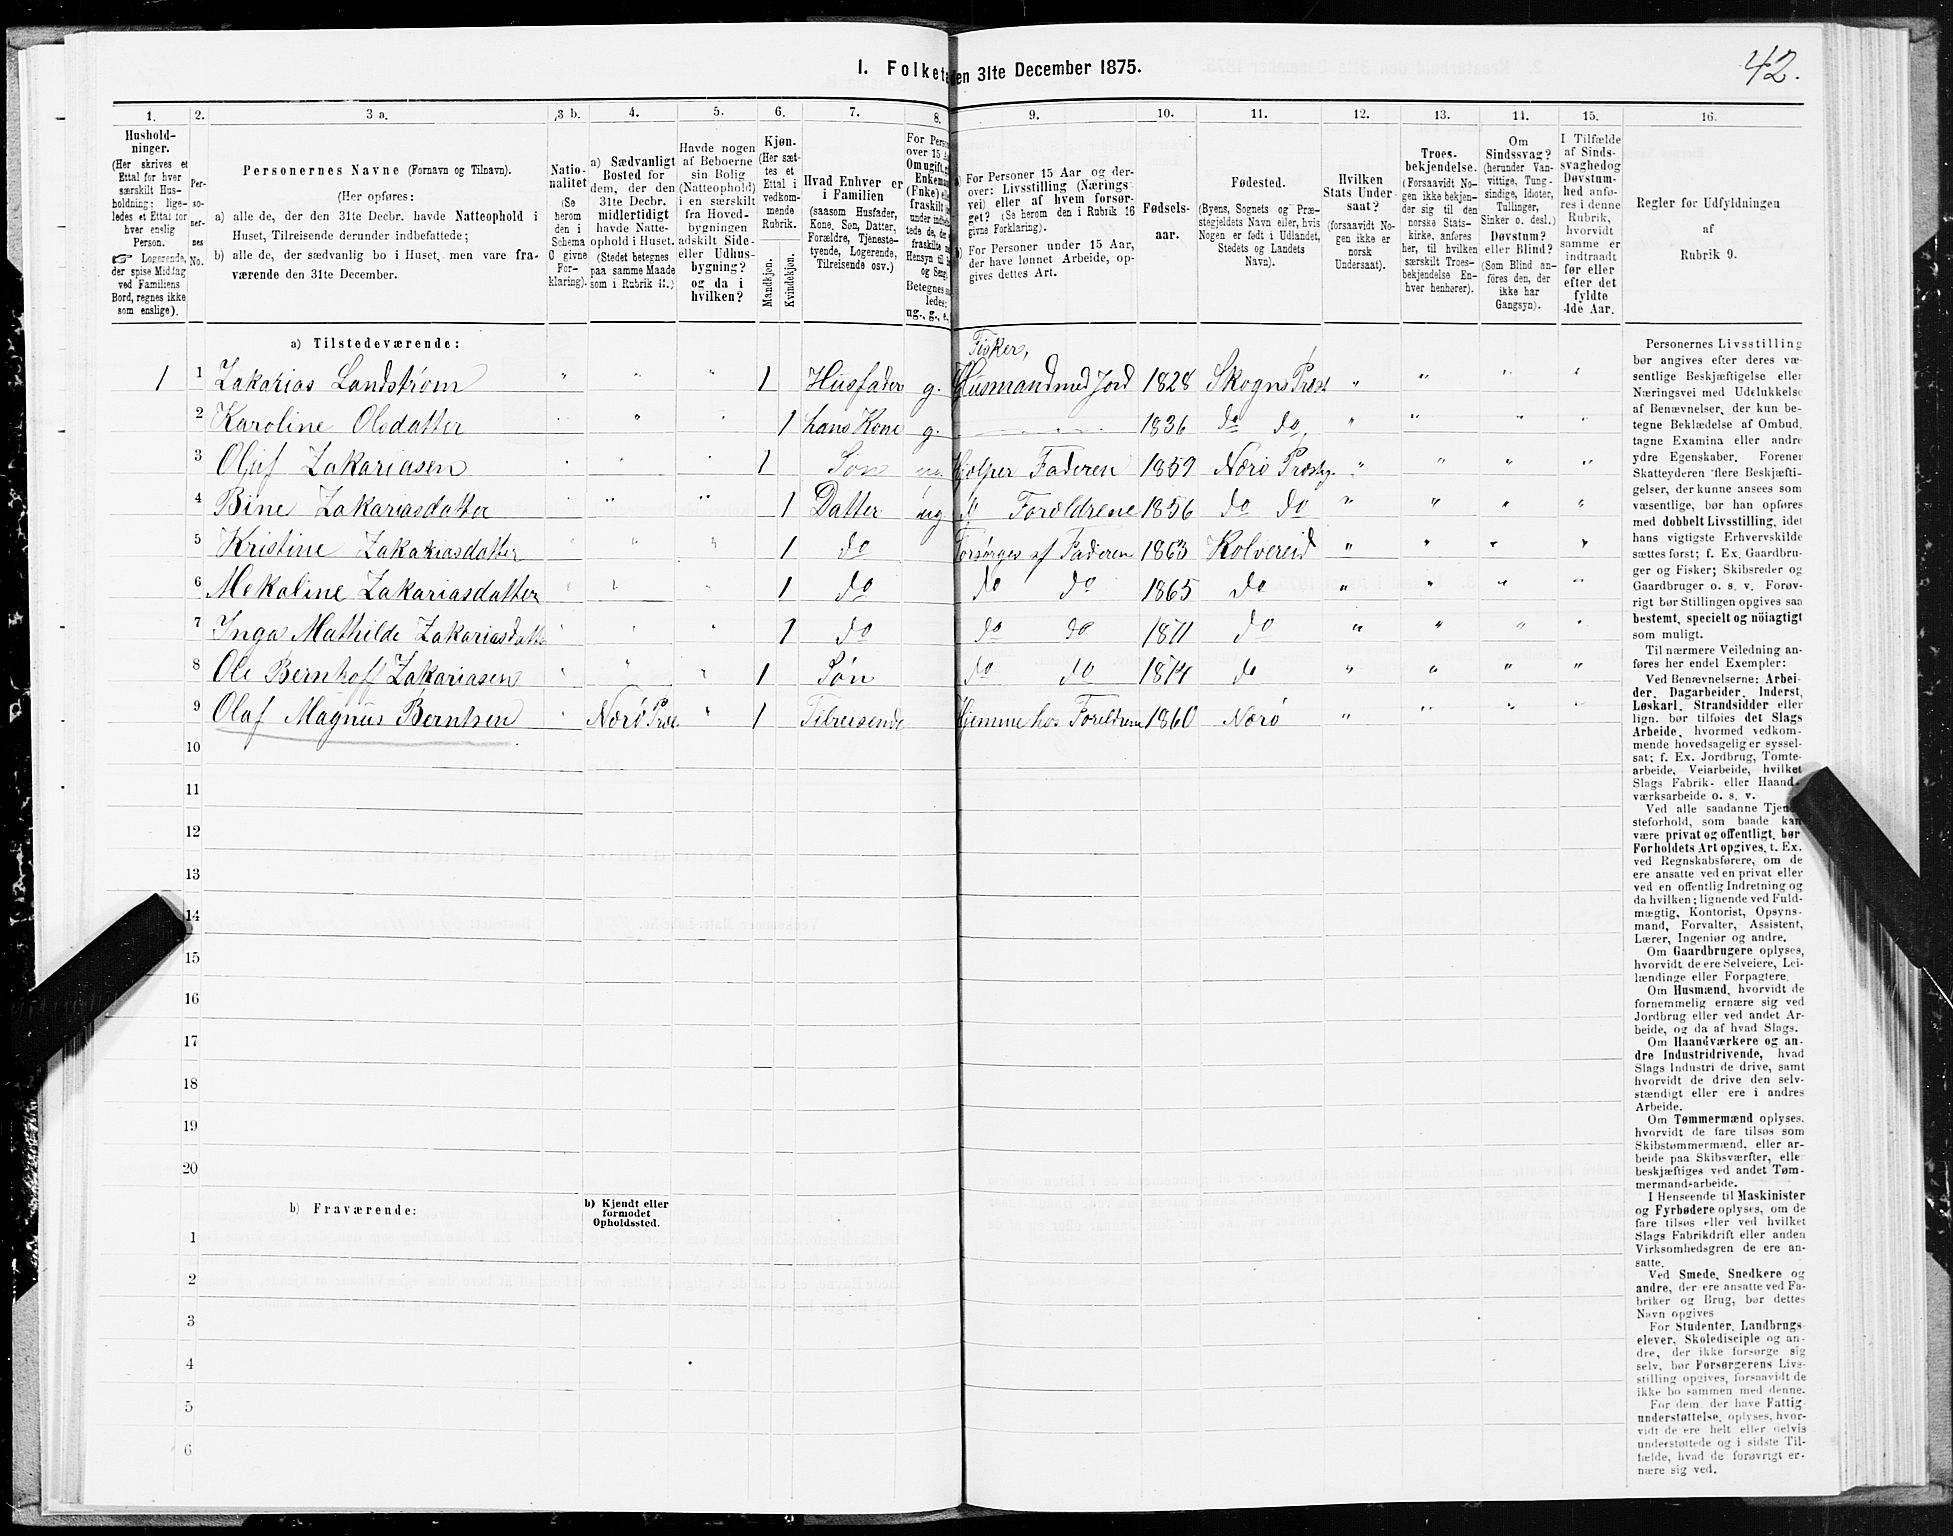 42.
I. Folketa en 31te December 1875.
1. 2. 3 a. 3 b. 4. 5. 6. 7. 8. 9. 10. 11. 12. 13. 14. 15. 16.
Hushold-
ninger.
(Her skrives et
Ettal for hver
særskilt Hus-
holdning; lige-
ledes et Ettal for
hver enslig
Person.
☞ Logerende,
der spise Middag
ved Familiens
Bord, regnes ikke
som enslige).
Per-
so-
ner-
nes
No.
Personernes Navne (Fornavn og Tilnavn).
(Her opføres:
a) alle de, der den 31te Decbr. havde Natteophold i
Huset, Tilreisende derunder indbefattede;
b) alle de, der sædvanlig bo i Huset, men vare fra-
værende den 31te December.
Natio-
nalitet
(Se
herom
den i
Schema
C givne
For-
klaring).
a) Sædvanligt
Bosted for
dem, der den
31te Decbr.
midlertidigt
havde Natte-
ophold i Huset.
(Stedet betegnes
paa samme Maade
som i Rubrik 11.)
Havde nogen
af Beboerne
sin Bolig
(Natteophold)
i en særskilt
fra Hoved-
bygningen
adskilt Side-
eller Udhus-
bygning?
og da i
hvilken?
Kjøn.
(Her sæt-
tes et
Ettal i
vedkom-
mende
Rubrik.
Mandkjøn.
Kvindekjøn.
Hvad Enhver er
i Familien
(saasom Husfader,
Kone, Søn, Datter,
Forældre, Tjeneste-
tyende, Logerende,
Tilreisende osv.)
For Perso
over 15 A
Om ugift, g
Enkeman
(Enke) el
fraskilt
under indbe
tede de, de
fraskilte
Hensyn til
og Seng.
Betegnes
ledes:
ug., g., e.,
a) For Personer 15 Aar og der-
over: Livsstilling (Nærings
vei) eller af hvem forsør-
get? (Se herom den i Rubrik 16
givne Forklaring).
b) For Personer under 15 Aar,
der have lønnet Arbeide, op-
gives dettes Art.
Fødsels-
aar.
Fødested.
(Byens, Sognets og Præ-
stegjeldets Navn eller, hvis
Nogen er født i Udlandet,
Stedets og Landets
Navn).
Hvilken
Stats Under-
saat?
(forsaavidt No-
gen ikke er
norsk
Undersaat).
Troes-
bekjendelse.
(Forsaavidt No-
gen ikke bekjen-
der sig til den
norske Stats-
kirke, anføres
her, til hvilken
særskilt Troes-
bekjendelse En-
hver henhører).
Om
Sindssvag?
(herunder Van-
vittige, Tung-
sindige, Idioter,
Tullinger,
Sinker o. desl.)
Døvstum?
eller Blind?
(Som Blind an-
føres den, der
ikke har
Gangsyn).
I Tilfælde
af Sinds-
svaghed og
Døvstum-
hed anfø-
res i denne
Rubrik,
hvorvidt
samme er
indtraadt
før eller
efter det
fyldte
4de Aar.
Regler for Udfyldningen
af
Rubrik 9.
a) Tilstedeværende:
Fisker,
1 1 Zakarias Landstrøm " " " 1 Husfader g. Husmand med Jord 1828 Skogns Præst " " " "
2 Karoline Olsdatter " " " 1 hans Kone g. 1836 do do " " " "
3 Oluf Zakariasen " " " 1 Søn ug. Hjelper Faderen 1859 Nærø Præstg. " " " "
4 Bine Zakariasdatter " " " 1 Datter ug d Forældrene 1856 do do " " " "
5 Kristine Zakariasdatter " " " 1 do Forsørges af Faderen 1863 Kolvereid " " " "
6 Mekaline Zakariasdatter " " " 1 do do do 1865 do " " " "
7 Inga Mathilde Zakariasdatte " " " 1 do do do 1871 do " " " "
8 Ole Bernhoff Zakariasen " " " 1 Søn do do 1874 do " " " "
9 Olaf Magnus Berntsen " Nærø Præ " 1 Tilreisende Hjemme hos Foreldrene 1860 Nærø " " " "
10
11
12
13
14
15
16
17
18
19
20
b) Fraværende:
b) Kjendt eller
formodet
Opholdssted.
1
2
3
4
5
6
Personernes Livsstilling
bør angives efter deres væ-
sentlige Beskjæftigelse eller
Næringsvei med Udelukkelse
af Benævnelser, der kun be-
tegne Beklædelse af Ombud,
tagne Examina eller andre
ydre Egenskaber. Forener
Skatteyderen flere Beskjæfti-
gelser, der kunne ansees som
væsentlige, bør han opføres
med dobbelt Livsstilling, idet
hans vigtigste Erhvervskilde
sættes først; f. Ex. Gaardbru-
ger og Fisker; Skibsreder og
Gaardbruger o. s. v. Forøv-
rigt bør Stillingen opgives saa
bestemt, specielt og nöiagtigt
som muligt.
Til nærmere Veiledning an-
føres her endel Exempler:
Ved Benævnelserne: Arbei-
der, Dagarbeider, Inderst,
Løskarl, Strandsidder eller
lign. bør tilføies det Slags
Arbeide, hvormed vedkom-
mende hovedsagelig er syssel-
sat; f. Ex. Jordbrug, Tomte-
arbeide, Veiarbeide, hvilket
Slags Fabrik- eller Haand-
værksarbeide o. s. v.
Ved alle saadanne Tjene-
steforhold, som baade kan
være privat og offentligt, bør
Forholdets Art opgives, t. Ex.
ved Regnskabsførere, om de
ere ansatte ved en privat eller
ved en offentlig Indretning og
da hvilken; lignende ved Fuld-
mægtig, Kontorist, Opsyns-
mand, Forvalter, Assistent,
Lærer, Ingeniør og andre.
Om Gaardbrugere oplyses,
hvorvidt de ere Selveiere, Lei-
lændinge eller Forpagtere.
Om Husmænd, hvorvidt de
fornemmelig ernære sig ved
Jordbrug eller ved andet Ar-
beide, og da af hvad Slags.
Om Haandværkere og an-
dre Industridrivende, hvad
Slags Industri de drive, samt
hvorvidt de drive den selv-
stændigt eller ere i andres
Arbeide.
Om Tømmermænd oplyses,
hvorvidt de fare tilsøs som
Skibstømmermænd, eller ar-
beide paa Skibsværfter, eller
beskjæftiges ved andet Tøm-
mermandsarbeide.
I Henseende til Maskinister
og Fyrbødere oplyses, om de
fare tilsøs eller ved hvilket
Slags Fabrikdrift eller anden
Virksomhedsgren de ere an-
satte.
Ved Smede, Snedkere og
andre, der ere ansatte ved Fa-
briker og Brug, bør dettes
Navn opgives
For Studenter, Landbrugs-
elever, Skoledisciple og an-
dre, der ikke forsørge sig
selv, bør Forsørgerens Livs-
stilling opgives, forsaavidt de
ikke bo sammen med denne.
For dem, der have Fattig-
understøttelse, oplyses, hvor-
vidt de ere helt eller delvis
understøttede og i sidste Til-
fælde, hvad de forøvrigt er-
nære sig ved.